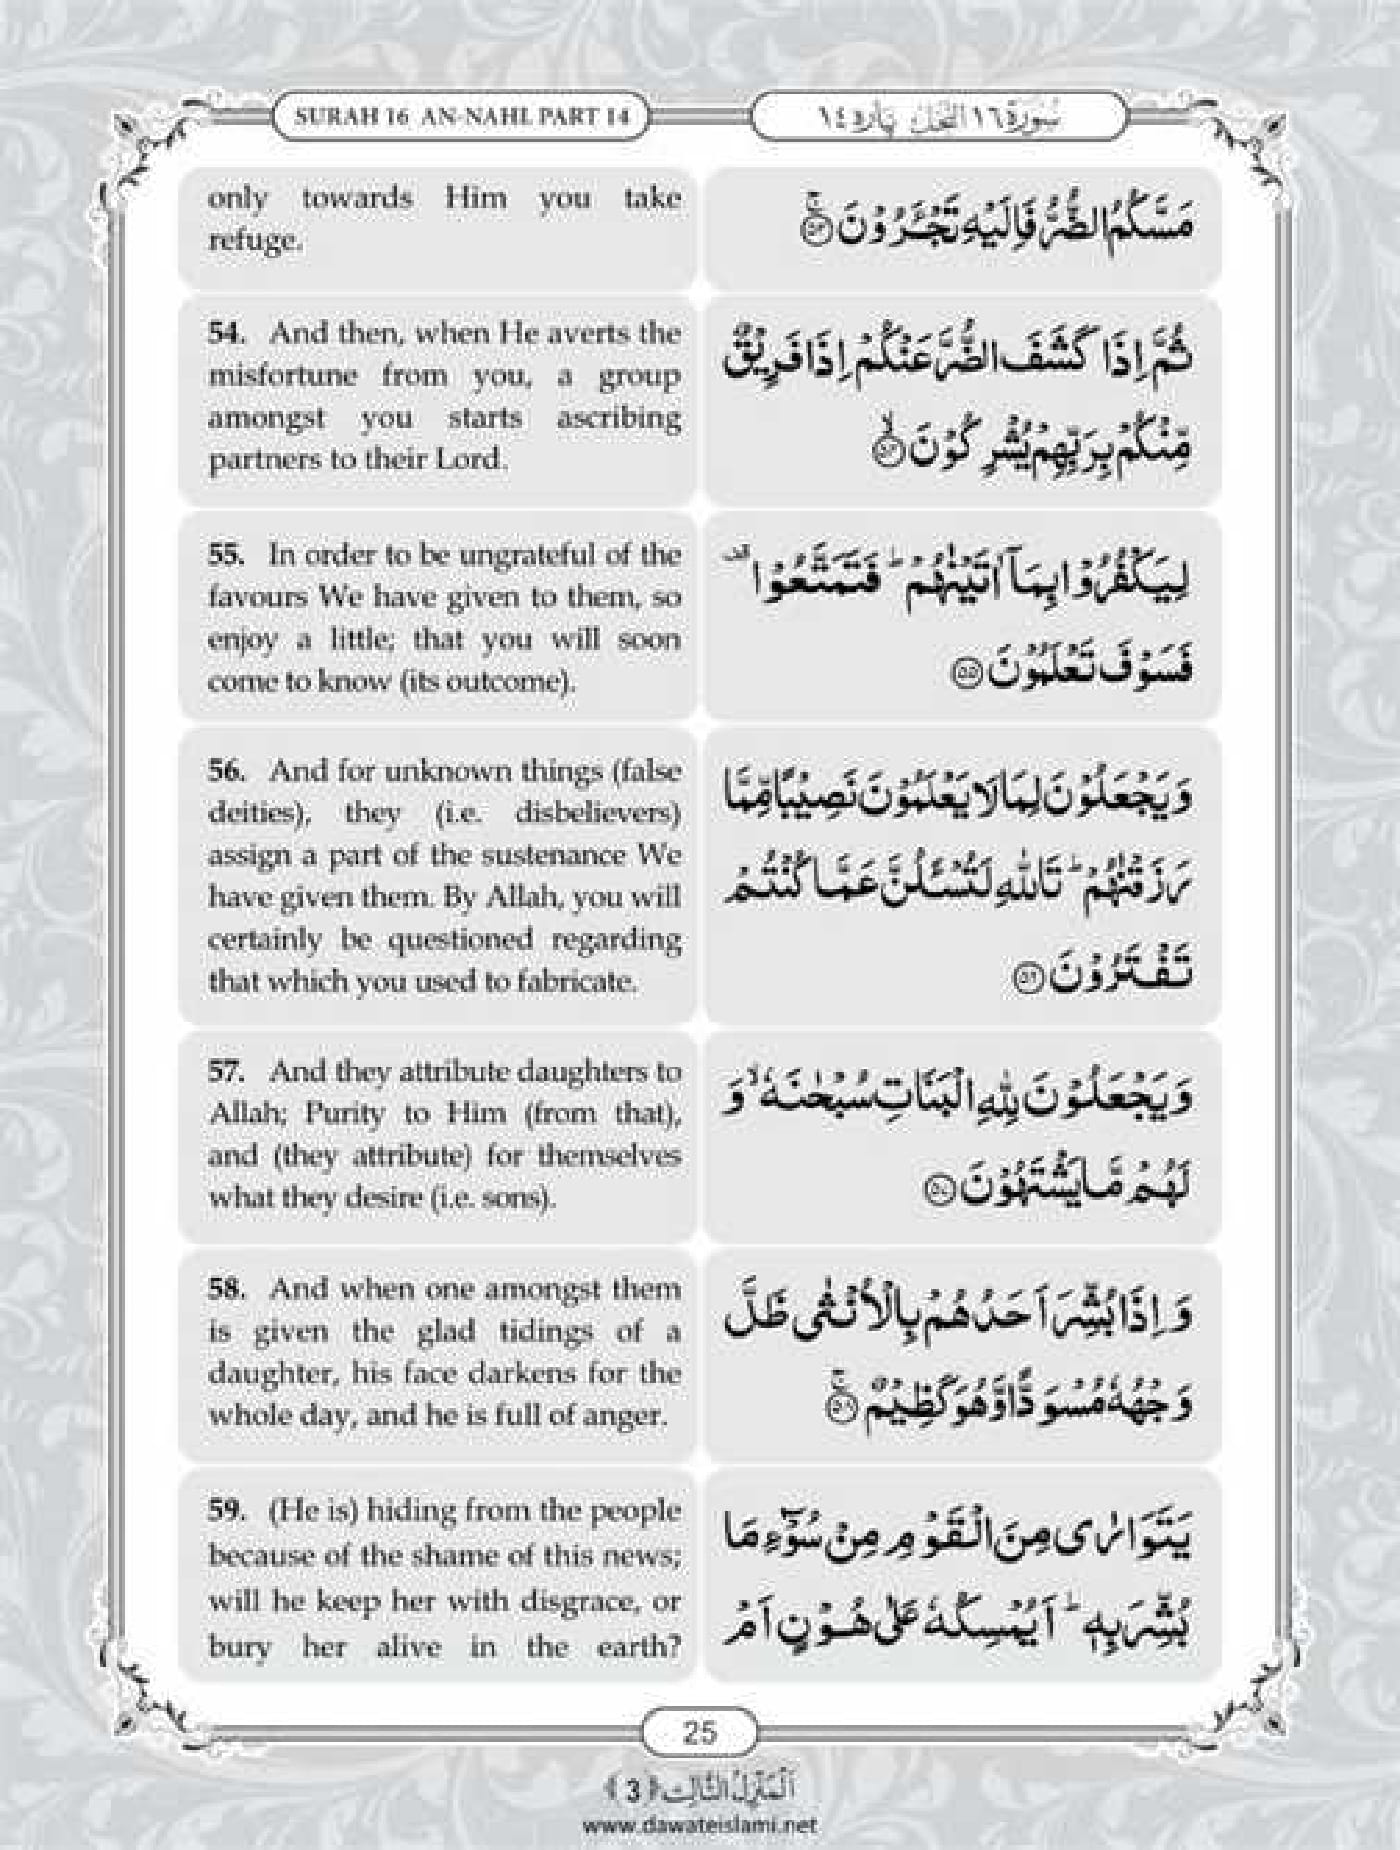 SURAH 16 AN-NAHL PART 14
سُورَة ١٦ النَّحْل پَارہ ١٤
only towards Him you take
refuge.
مَسَّكُمُ الضُّرُّ فَاِلَیْهِ تَجْــٴَـرُوْنَۚ ﴿۵۳﴾
54. And then, when He averts the
misfortune from you, a group
amongst you starts ascribing
partners to their Lord.
ثُمَّ اِذَا كَشَفَ الضُّرَّ عَنْكُمْ اِذَا فَرِیْقٌ
مِّنْكُمْ بِرَبِّهِمْ یُشْرِكُوْنَۙ ﴿۵۴﴾
55. In order to be ungrateful of the
favours We have given to them, so
enjoy a little; that you will soon
come to know (its outcome).
لِیَكْفُرُوْا بِمَاۤ اٰتَیْنٰهُمْؕ فَتَمَتَّعُوْا۫
فَسَوْفَ تَعْلَمُوْنَ ﴿۵۵﴾
56. And for unknown things (false
deities), they (i.e. disbelievers)
assign a part of the sustenance We
have given them. By Allah, you will
certainly be questioned regarding
that which you used to fabricate.
وَ یَجْعَلُوْنَ لِمَا لَا یَعْلَمُوْنَ نَصِیْبًا مِّمَّا
رَزَقْنٰهُمْؕ تَاللّٰهِ لَتُسْــٴَـلُنَّ عَمَّا كُنْتُمْ
تَفْتَرُوْنَ ﴿۵۶﴾
57. And they attribute daughters to
Allah; Purity to Him (from that),
and (they attribute) for themselves
what they desire (i.e. sons).
وَ یَجْعَلُوْنَ لِلّٰهِ الْبَنَاتِ سُبْحٰنَهٗۙ وَ
لَهُمْ مَّا یَشْتَهُوْنَ ﴿۵۷﴾
58. And when one amongst them
is given the glad tidings of a
daughter, his face darkens for the
whole day, and he is full of anger.
وَ اِذَا بُشِّرَ اَحَدُهُمْ بِالْاُنْثٰى ظَلَّ
وَجْهُهٗ مُسْوَدًّا وَّ هُوَ كَظِیْمٌۚ ﴿۵۸﴾
59. (He is) hiding from the people
because of the shame of this news;
will he keep her with disgrace, or
bury her alive in the earth?
یَتَوَارٰى مِنَ الْقَوْمِ مِنْ سُوْٓءِ مَا
بُشِّرَ بِهٖؕ اَیُمْسِكُهٗ عَلٰى هُوْنٍ اَمْ
25
اَلْمَنْزِلُ الثَّالِث ﴿3﴾
www.dawateislami.net